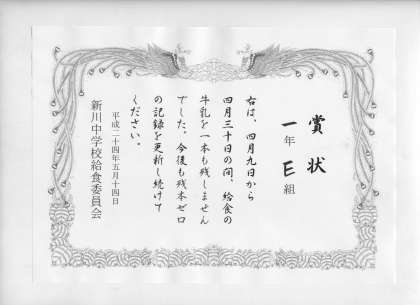 賞状
一年 E組
右は、四月九日から
四月三十日の間、給食の
牛乳を一本も残しません
でした。今後も残本ゼロ
の記録を更新し続けて
ください。
平成二十四年五月十四日
新川中学校給食委員会